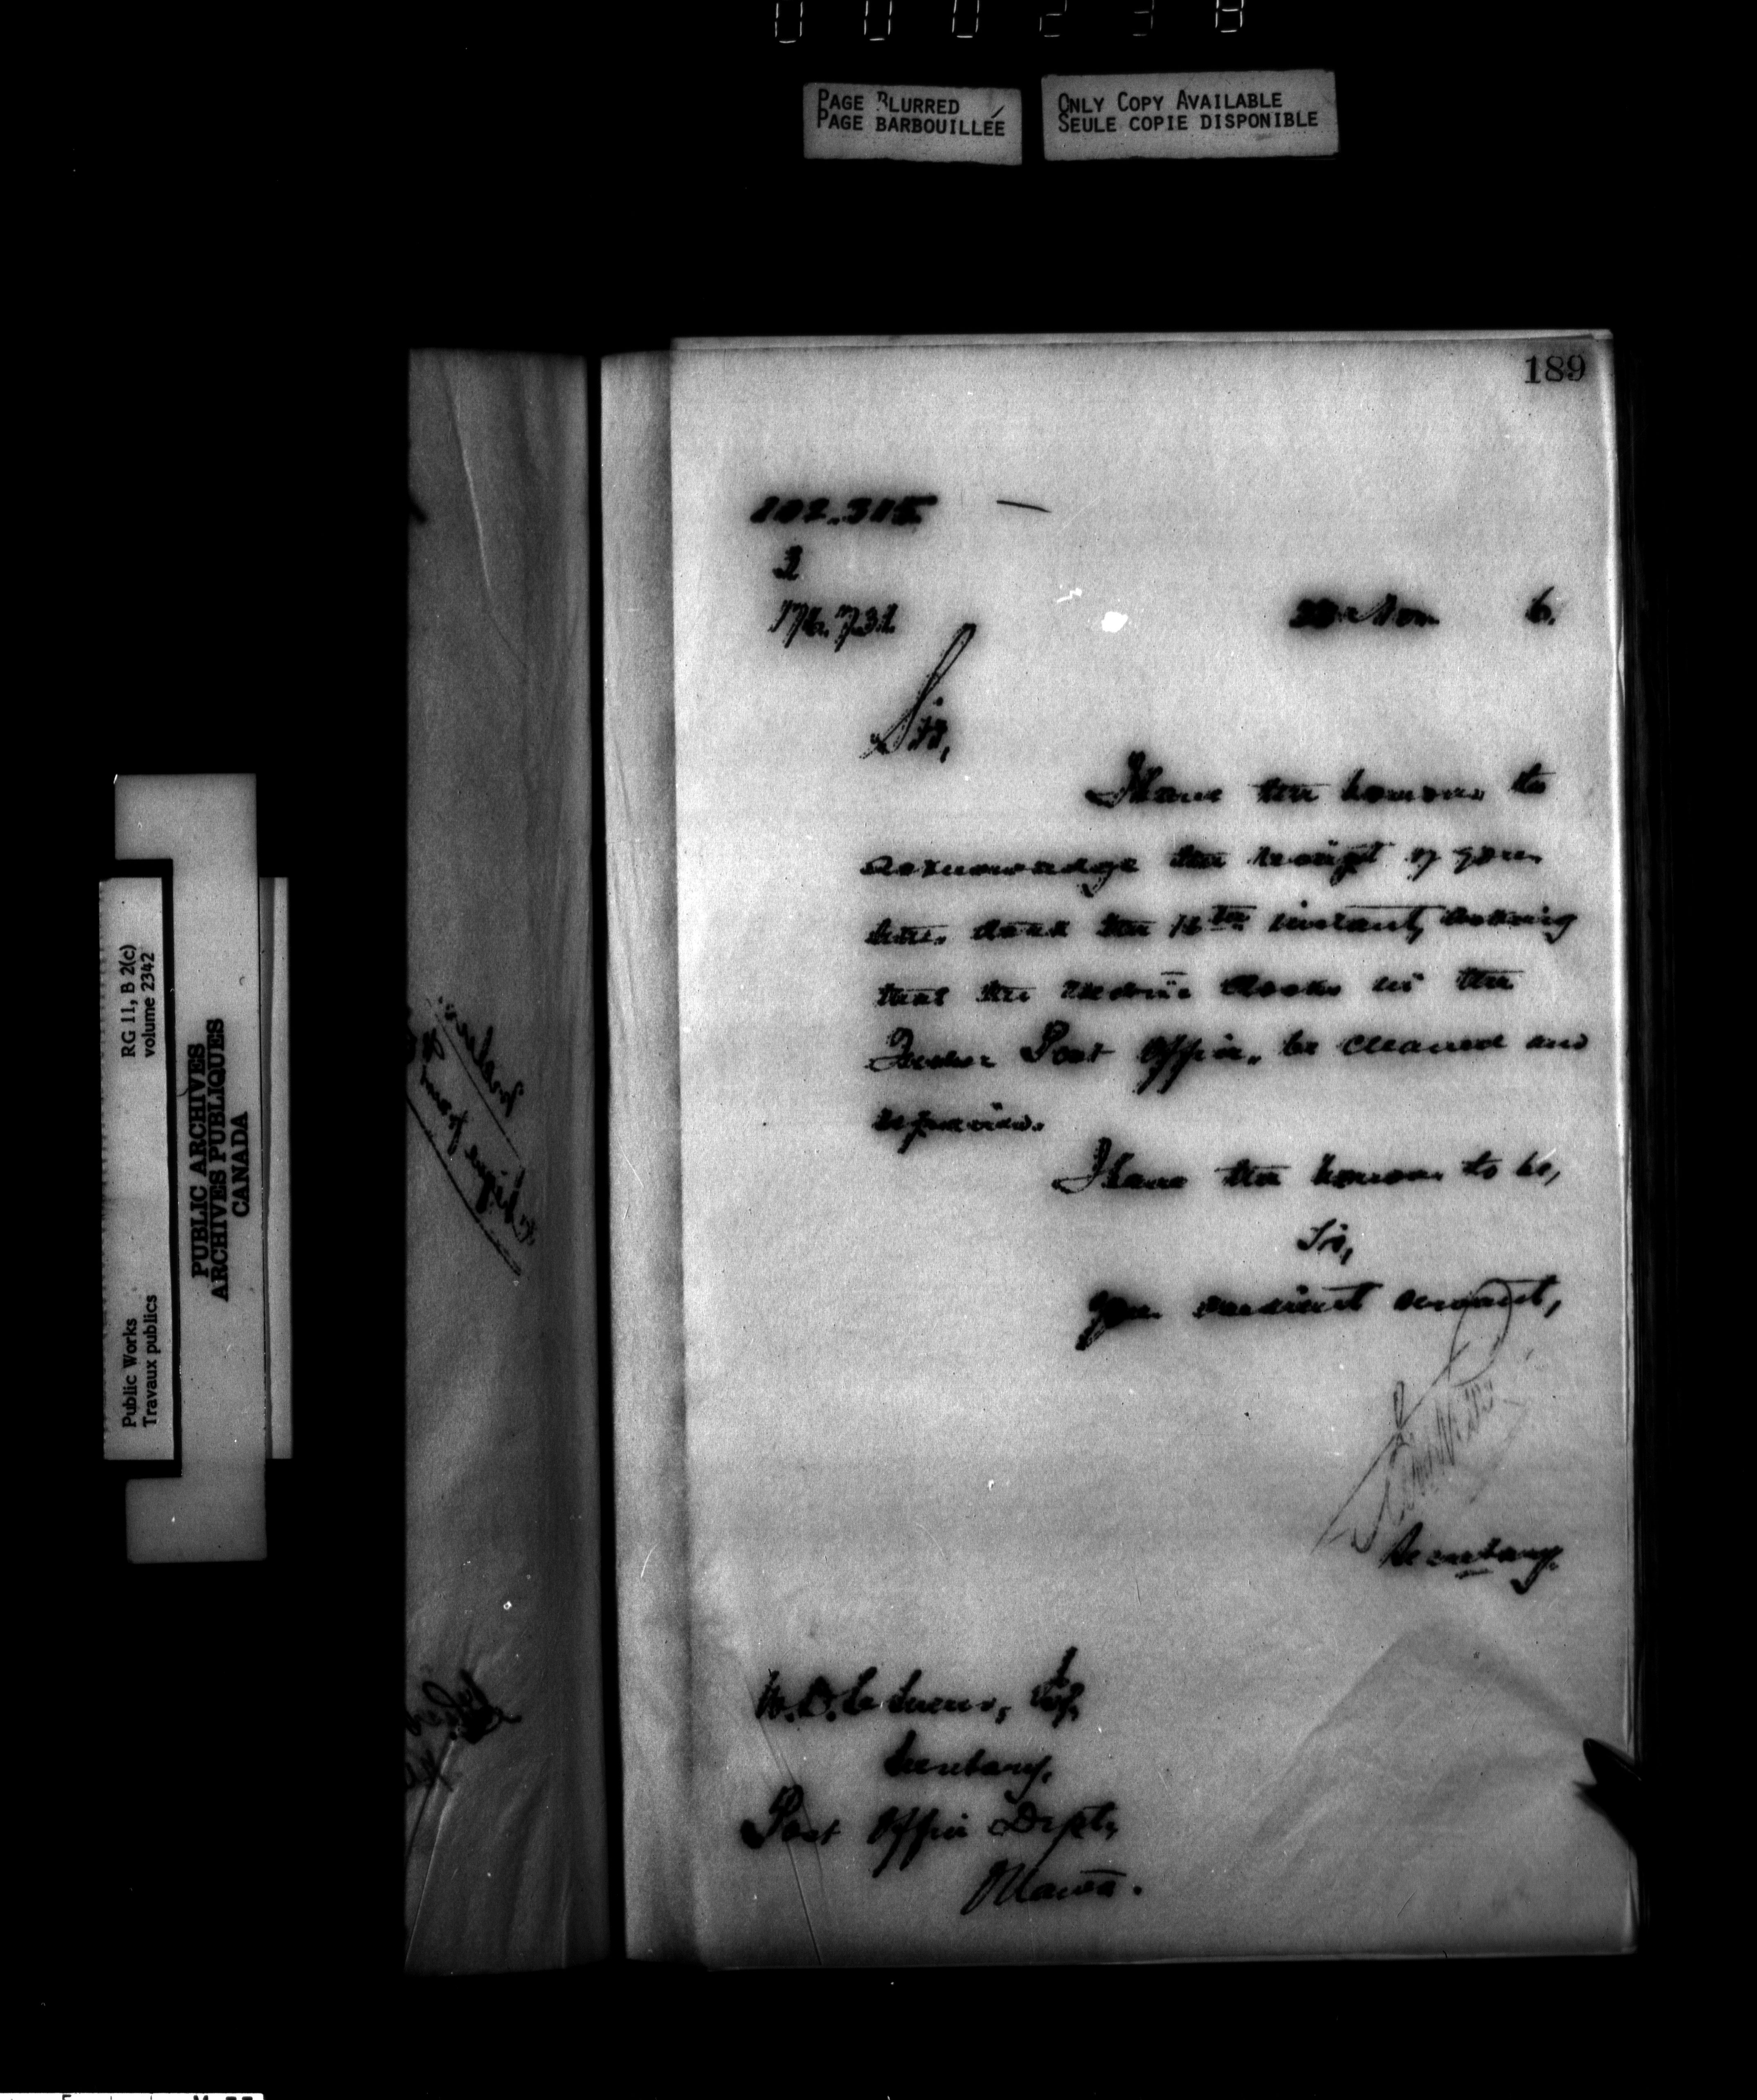 000238
PAGE BLURRED
PAGE BARBOUILLÉE
ONLY COPY AVAILABLE
SEULE COPIE DISPONIBLE
RG 11, B 2(c)
volume 2342
PUBLIC ARCHIVES
ARCHIVES PUBLIQUES
CANADA
Public Works
Travaux publics
189
102.315
2
Nov. 6.
Sir,
I have the honour to
acknowledge the receipt of your
letter dated the 16th instant, asking
that the electric clocks in the
Quebec Post Office, be cleaned and
repaired.
I have the honour to be,
Sir,
Your obedient servant,
Secretary.
W. D. Le Sueur, Esq.
Secretary,
Post Office Dept,
Ottawa.